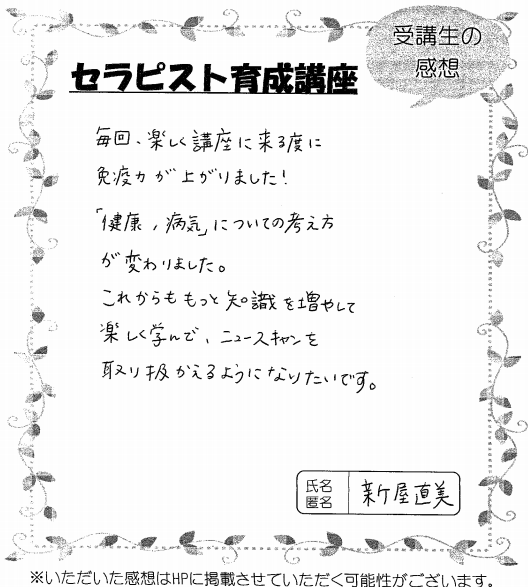 受講生の
感想
セラピスト育成講座
毎回、楽しく講座に来る度に
免疫力が上がりました!
「健康,病気」についての考え方
が変わりました。
これからももっと知識を増やして
楽しく学んで、ニュースキャンを
取り扱かえるようになりたいです。
氏名
匿名
新屋直美
※いただいた感想はHPに掲載させていただく可能性がございます。